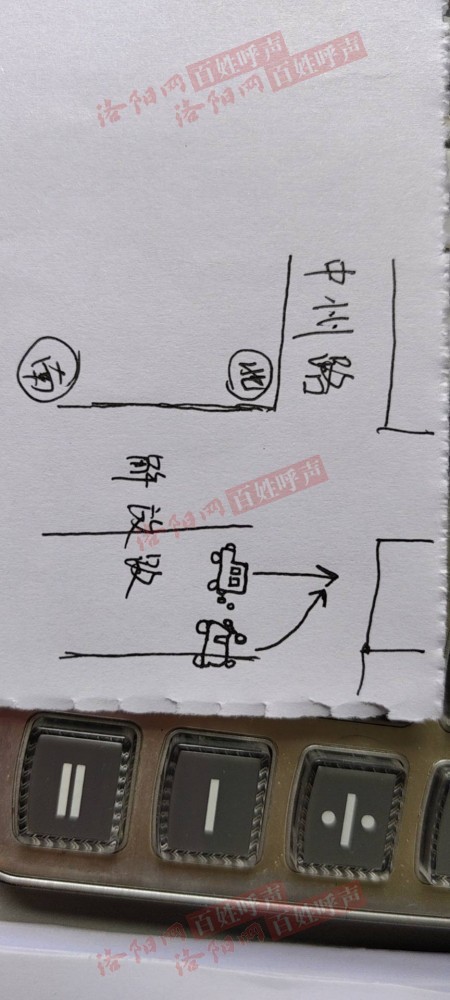 洛阳网百姓呼声
洛阳网百姓呼声
中州路
南
北
解放路
洛阳网百姓呼声
= − ÷
洛阳网百姓呼声
洛阳网百姓呼声